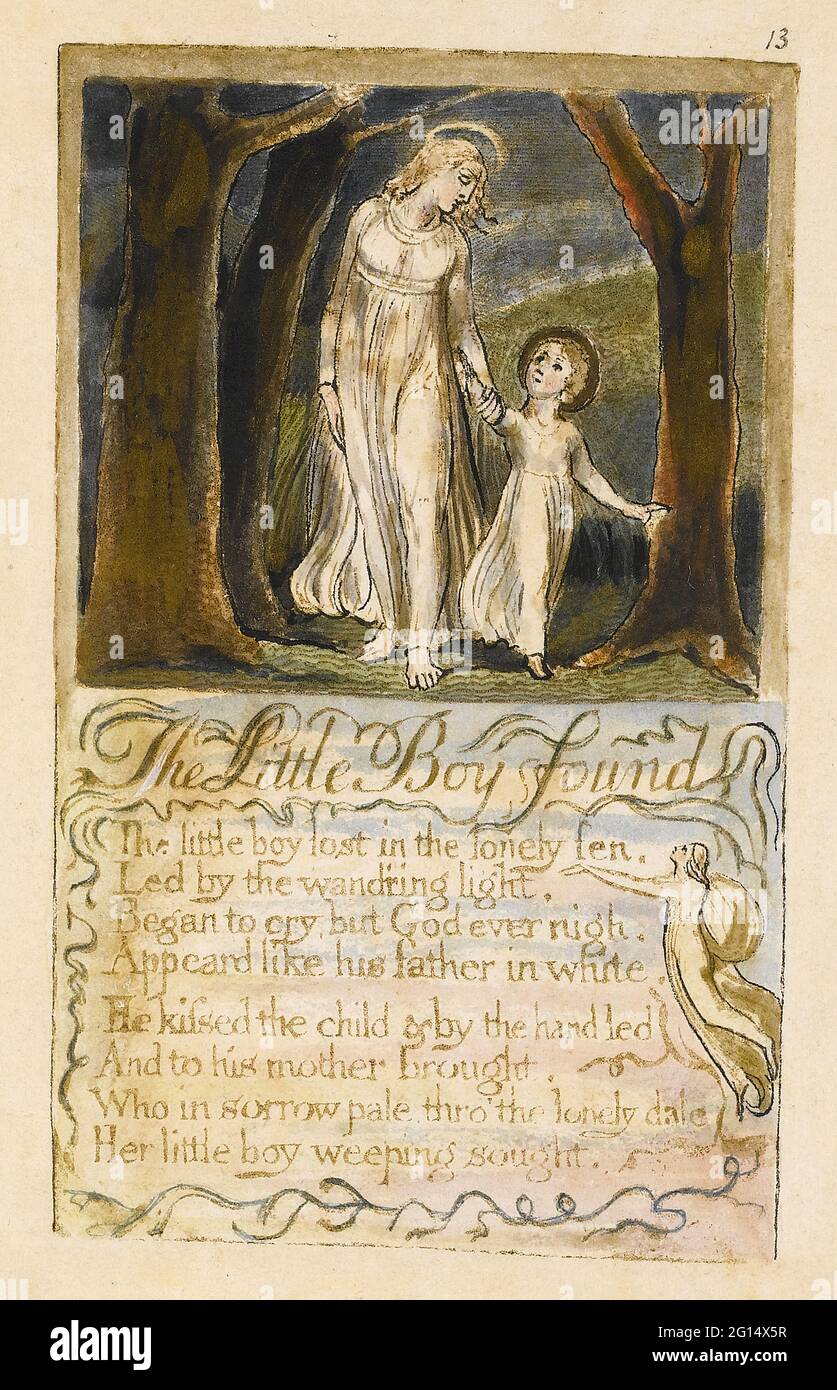 13
The Little Boy found
The little boy lost in the lonely fen,
Led by the wand'ring light,
Began to cry, but God ever nigh,
Appeard like his father in white.
He kissed the child & by the hand led
And to his mother brought,
Who in sorrow pale, thro' the lonely dale
Her little boy weeping sought.
alamy
Image ID: 2G14X5R
www.alamy.com